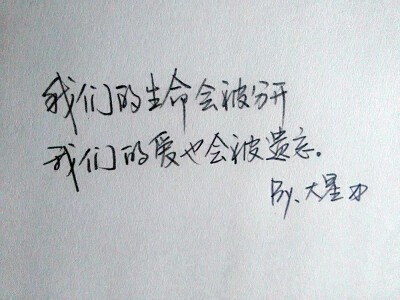 我们的生命会被分开
我们的爱也会被遗忘。
By、大星